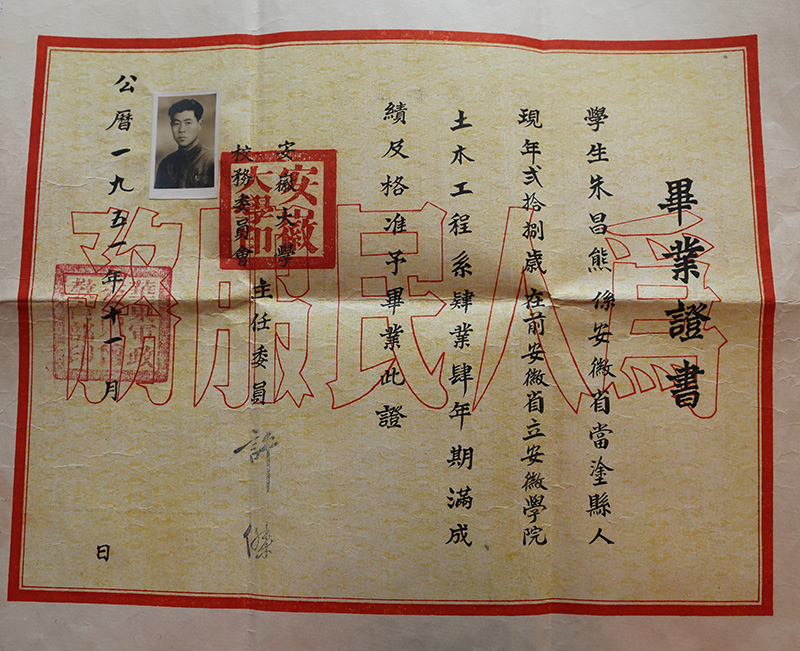 畢業證書
學生朱昌熊係安徽省當塗縣人
現年弍拾捌歲在前安徽省立安徽學院
土木工程系肄業肆年期滿成
績及格准予畢業此證
安徽大學
校務委員會
主任委員 許傑
公曆一九五一年十一月 日
為人民服務
安徽
大學印